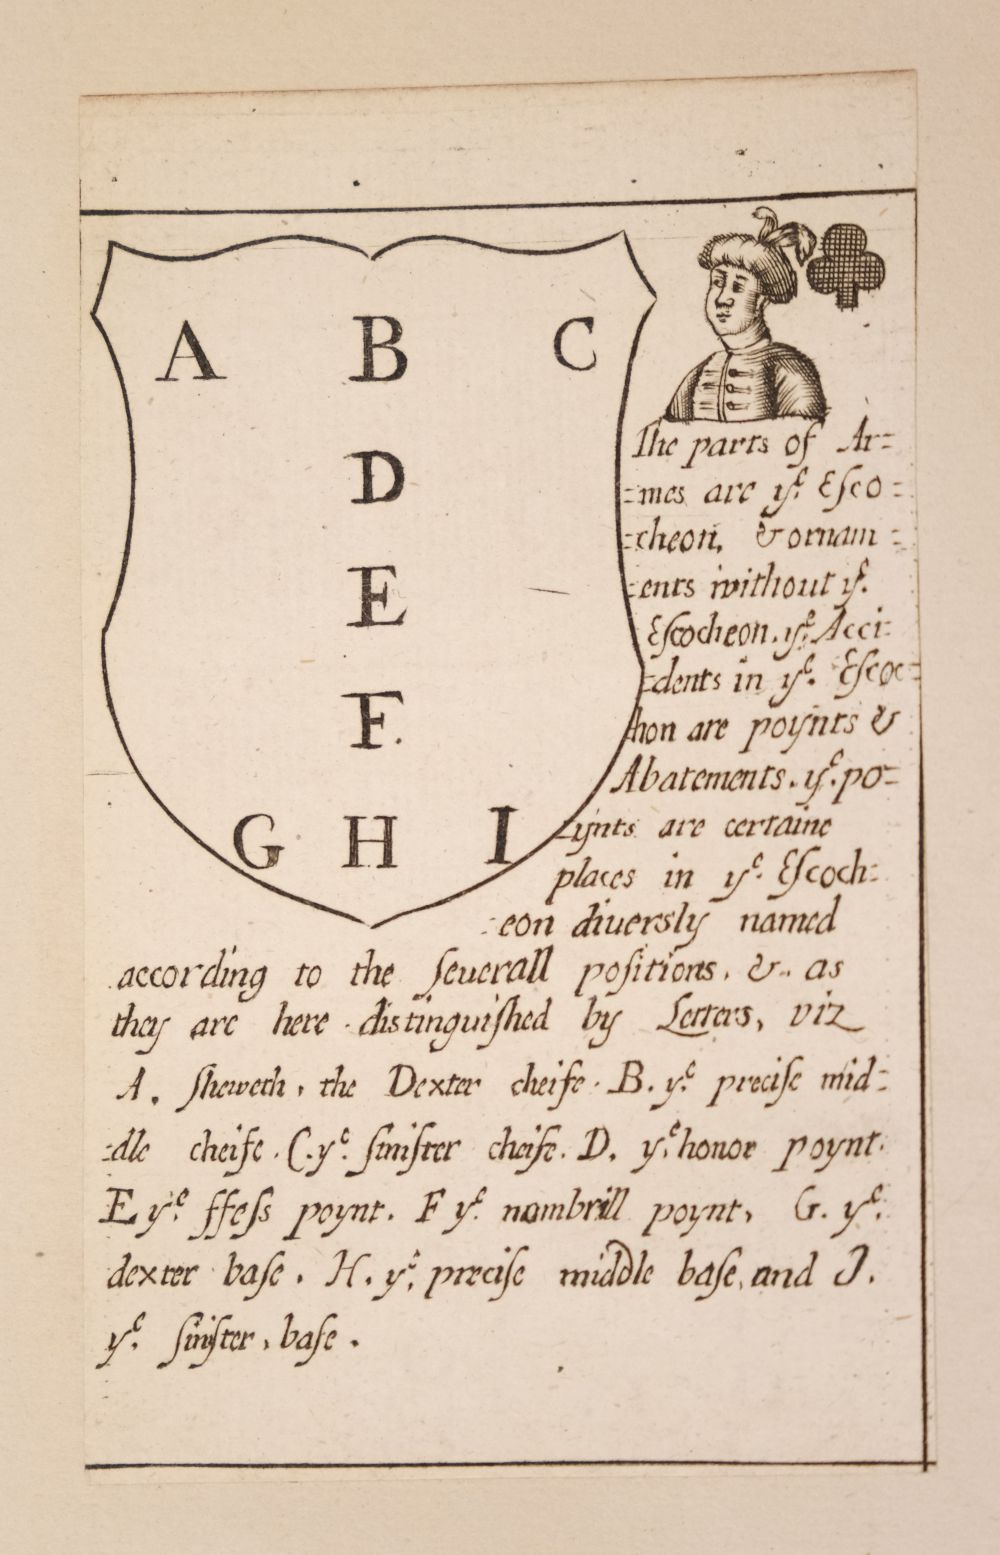 A B C
D
E
F.
G H I
The parts of Ar=
=mes are yᵉ. Eſco=
=cheon, & ornam=
=ents without yᵉ.
Eſcocheon. yᵉ. Acci=
=dents in yᵉ. Eſcoc=
hon are poynts &
Abatements. yᵉ. po=
=ynts are certaine
places in yᵉ. Eſcoch=
=eon diuersly named
according to the ſeuerall poſitions. &. as
they are here distinguiſhed by Letters, viz
A. ſheweth, the Dexter cheife. B. yᵉ preciſe mid=
=dle cheife. C. yᵉ. ſiniſter cheife. D. yᵉ. honor poynt.
E yᵉ. ffeſs poynt. F yᵉ. nombrill poynt, G. yᵉ.
dexter baſe. H. yᵉ, preciſe middle baſe, and J.
yᵉ. ſiniſter, baſe.